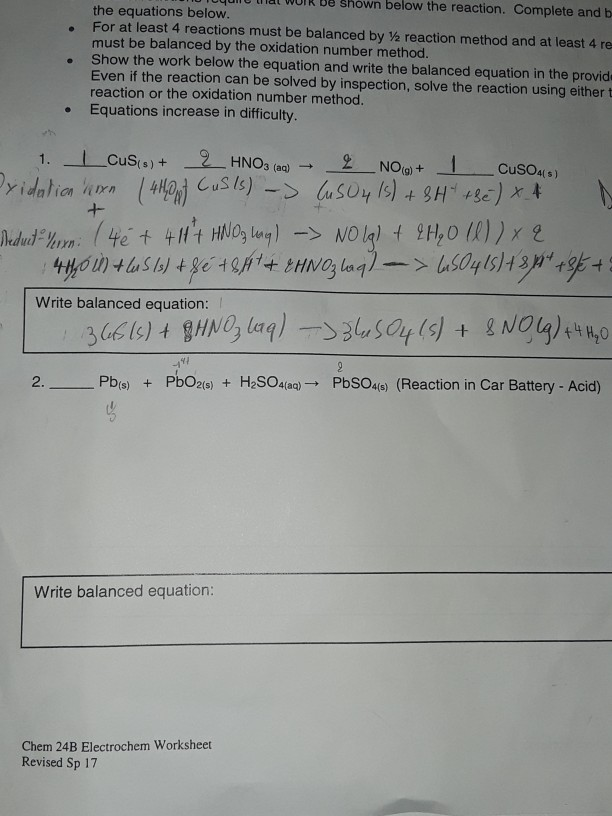 be shown below the reaction. Complete and b
the equations below.
• For at least 4 reactions must be balanced by ½ reaction method and at least 4 re
must be balanced by the oxidation number method.
• Show the work below the equation and write the balanced equation in the provide
Even if the reaction can be solved by inspection, solve the reaction using either t
reaction or the oxidation number method.
• Equations increase in difficulty.
1. 1 CuS(s) + 2 HNO3 (aq) → 2 NO(g) + 1 CuSO4(s)
Oxidation ½rxn (4H2O(l)+ CuS(s) —> CuSO4(s) + 8H+ +8e-) x 1
+
Reduct= ½rxn. (4e- + 4H+ + HNO3(aq) —> NO(g) + 2H2O(l)) x 2
4H2O(l) + CuS(s) + 8e- + 8H+ + 2HNO3(aq) —> CuSO4(s) + 8H+ + 8e- +
Write balanced equation:
3CuS(s) + 8HNO3(aq) —> 3CuSO4(s) + 8NO(g) + 4H2O
2. ____ Pb(s) + PbO2(s) + H2SO4(aq) → PbSO4(s) (Reaction in Car Battery - Acid)
Write balanced equation:
Chem 24B Electrochem Worksheet
Revised Sp 17